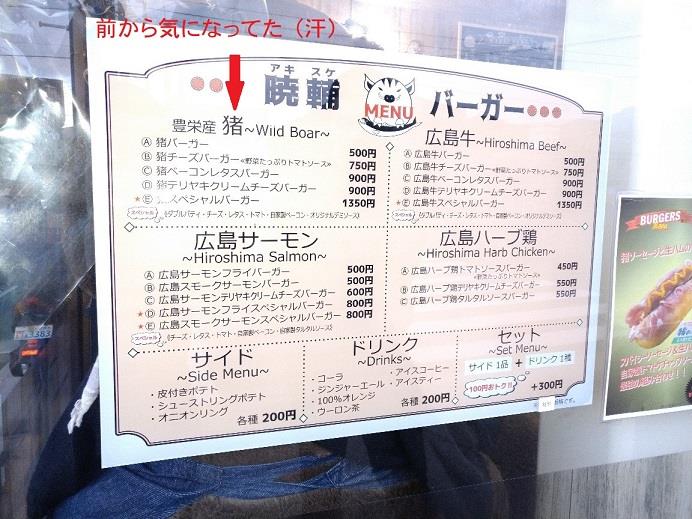 前から気になってた（汗）
アキ スケ
暁輔
MENU
バーガー
豊栄産 猪~Wild Boar~
Ⓐ 猪バーガー 500円
Ⓑ 猪チーズバーガー≪野菜たっぷりトマトソース≫ 750円
Ⓒ 猪ベーコンレタスバーガー 900円
Ⓓ 猪テリヤキクリームチーズバーガー 900円
★Ⓔ 猪スペシャルバーガー 1350円
スペシャル 《ダブルパティ・チーズ・レタス・トマト・自家製ベーコン・オリジナルデミソース》
広島牛~Hiroshima Beef~
Ⓐ 広島牛バーガー 500円
Ⓑ 広島牛チーズバーガー≪野菜たっぷりトマトソース≫ 750円
Ⓒ 広島牛ベーコンレタスバーガー 900円
Ⓓ 広島牛テリヤキクリームチーズバーガー 900円
★Ⓔ 広島牛スペシャルバーガー 1350円
スペシャル 《ダブルパティ・チーズ・レタス・トマト・自家製ベーコン・オリジナルデミソース》
広島サーモン
~Hiroshima Salmon~
Ⓐ 広島サーモンフライバーガー 500円
Ⓑ 広島スモークサーモンバーガー 500円
Ⓒ 広島サーモンテリヤキクリームチーズバーガー 600円
★Ⓓ 広島サーモンフライスペシャルバーガー 800円
★Ⓔ 広島スモークサーモンスペシャルバーガー 800円
スペシャル 《チーズ・レタス・トマト・自家製ベーコン・自家製タルタルソース》
広島ハーブ鶏
~Hiroshima Harb Chicken~
Ⓐ 広島ハーブ鶏トマトソースバーガー 450円
≪野菜たっぷりトマトソース≫
Ⓑ 広島ハーブ鶏テリヤキバーガー 550円
Ⓒ 広島ハーブ鶏タルタルソースバーガー 550円
サイド
~Side Menu~
・皮付きポテト
・シューストリングポテト
・オニオンリング
各種 200円
ドリンク
~Drinks~
・コーラ ・アイスコーヒー
・ジンジャーエール ・アイスティー
・100%オレンジ
・ウーロン茶 各種 200円
セット
~Set Menu~
サイド 1品 + ドリンク 1種
100円おトク!! +300円
BURGERS